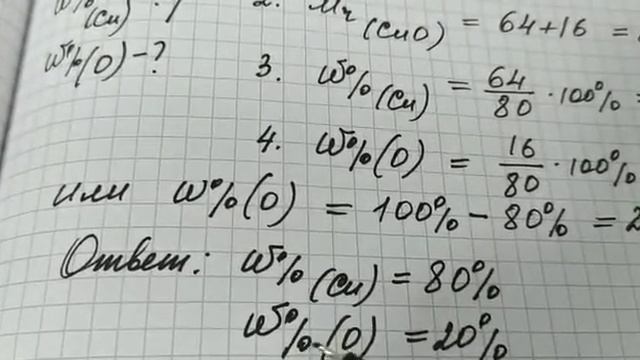 (Cu)
2. Mr (CuO) = 64+16 =
W%(O) - ?
3. W%(Cu) = 64/80 · 100% =
4. W%(O) = 16/80 · 100%
или W%(O) = 100% - 80% = 2
Ответ: W%(Cu) = 80%
W%(O) = 20%